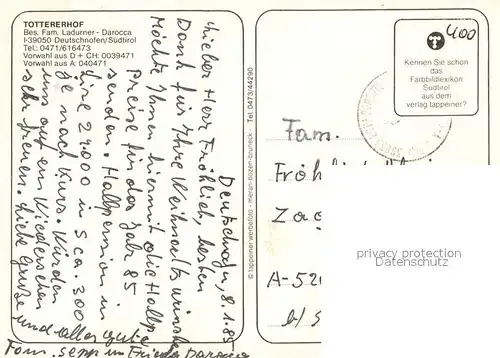 TOTTERERHOF
Bes. Fam. Ladurner - Darocca
I-39050 Deutschnofen/Südtirol
Tel.: 0471/616473
Vorwahl aus D + CH: 0039471
Vorwahl aus A: 040471
Deutschnofen, 8.1.85
Lieber Herr Fröhlich, besten
Dank für Ihre Weihnachtswünsche
Möchte Ihnen hiermit die Halbp.
preise für das Jahr 85
senden. Halbpension in
Lire 27.000 in S ca. 300
je nach Kurs. Würden
uns auf ein Wiedersehen
sehr freuen. Liebe Grüße
und alles gute
Fam. Sepp und Frieda Darocca
© tappeiner werbefoto - meran-bozen-bruneck - Tel. 0473/44290
400
Kennen Sie schon
das
Farbbildlexikon
Südtirol
aus dem
verlag tappeiner?
Fam.
Fröhli
Zag
A-521
b/S
privacy protection
Datenschutz